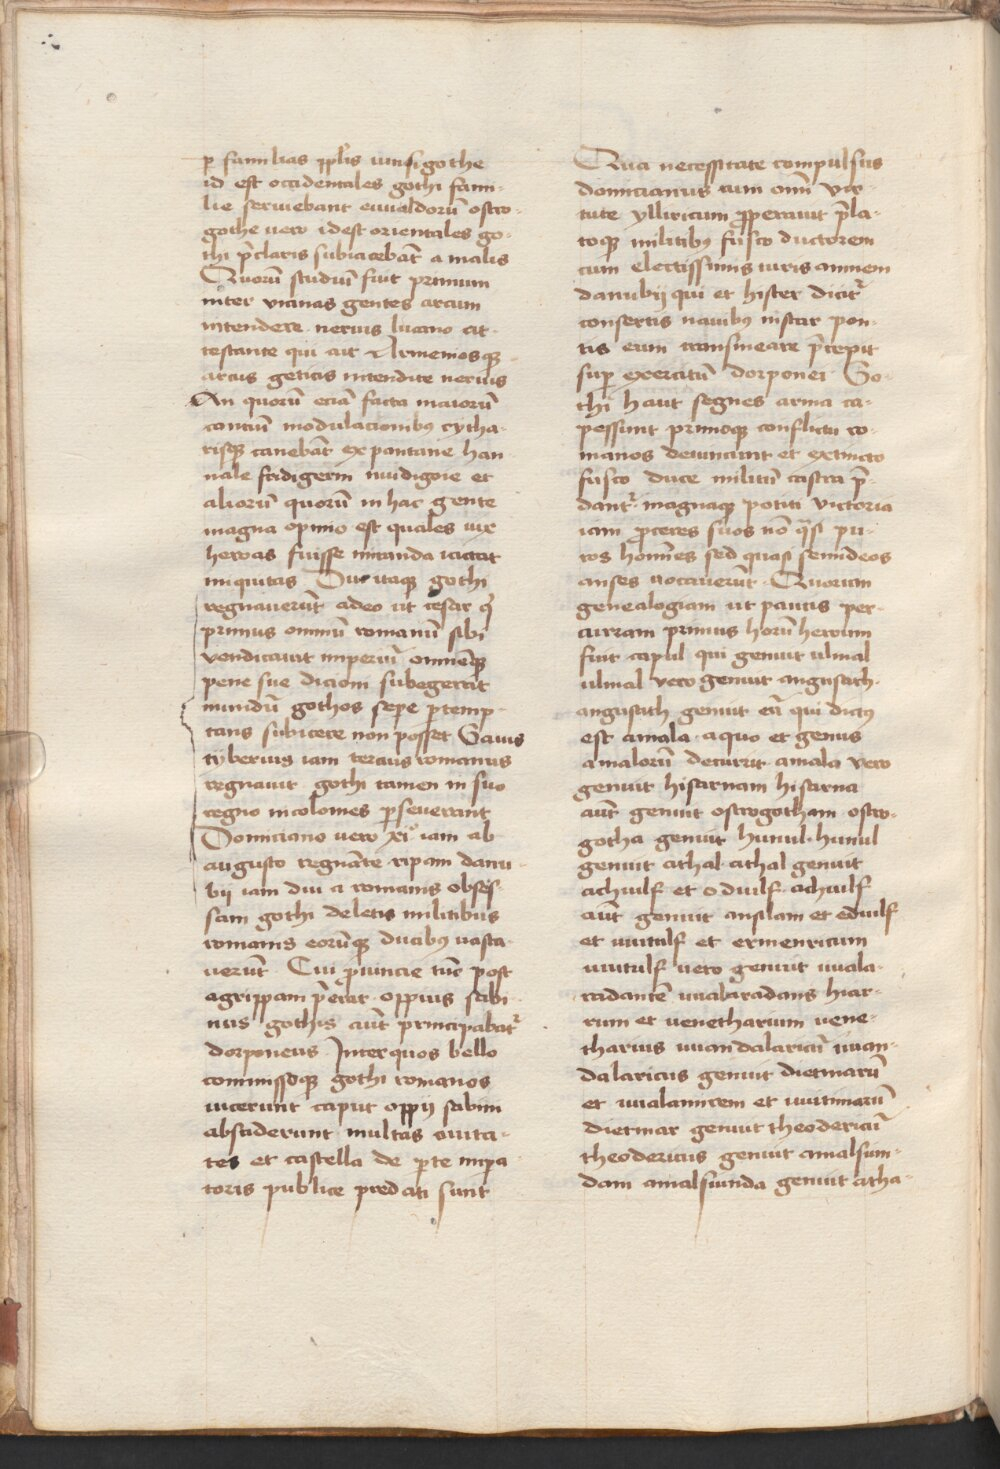 ꝑ familias ppl̄is uuisigothe
id est occidentales gothi fami-
lie seruiebant eiuualdorū ostro-
gothe uero idest orientales go-
thi p̄claris subiacebāt amalis
Quorū studiū fuit primum
inter vicinas gentes arcum
intendere neruis lucano at-
testante qui ait Armeniosqꝫ
arcus geticis intendite neruis
An quorū eciā facta maiorū
cantiū modulacionibꝰ cytha-
risqꝫ canebāt expantane han-
nale fridigerni uuidigoie et
aliorū quorū in hac gente
magna opinio est quales uix
heroas fuisse miranda iactat
iniquitas Dū itaqꝫ gothi
regnauerūt adeo ut cesar q̇
primus omniū romanū sibi
vendicauit imperiū omnēqꝫ
pene sue dicioni subegerit
mundū gothos sepe ꝑtemp-
tans subicere non posset Gaius
tyberius iam tercius romanus
regnauit gothi tamen in suo
regno incolomes ꝑseuerant
Domiciano uero xiº iam ab
augusto regnāte ripam danu-
bij iam diu a romanis obses-
sam gothi deletis militibus
romanis eorūqꝫ ducibꝰ uasta-
uerūt Cui ꝓuincie tūc post
agrippam p̄erat oppius sabi-
nus gothis aūt principabatᷣ
dorponeus Inter quos bello
commissoqꝫ gothi romanos
uicerunt caput oppij sabini
absciderunt multas ciuita-
tes et castella de ꝑte impa-
toris publice predati sunt
Qua necessitate compulsus
domicianus cum omī vir-
tute ylliricum ꝓperauit p̄la-
toqꝫ militibꝰ fusco ductorem
cum electissimis uiris amnem
danubij qui et hister dicitᷣ
consertis nauibꝰ instar pon-
tis eum transmeare p̄cepit
suꝑ exercitū dorponei Go-
thi haut segnes arma ca-
pessunt primoqꝫ conflictu ro-
manos deuincunt et extincto
fusco duce militū castra p̄-
dantᷣ magnaqꝫ potiti victoria
iam ꝓceres suos nō q̄si pu-
ros homines sed quasi semideos
anses uocauerūt Quorum
genealogiam ut paucis per-
curram primus horū heroum
fuit capul qui genuit ulmal
ulmal vero genuit angusich
angusith genuit eū qui dictꝰ
est amala a quo et genus
amalorū decurit amala vero
genuit hisarnam hisarna
aūt genuit ostrogotham ostro-
gotha genuit hunul hunul
genuit athal athal genuit
achiulf et oduulf achiulf
aūt genuit ansilam et ediulf
et uuitulf et ermenricum
uuitulf uero genuit uuala-
radantē uualaradans hiar-
rum et uenetharium uene-
tharius uuandalaricū uuan-
dalaricus genuit dietmarū
et uualamirem et uuitimarū
dietmar genuit theodericū
theodericus genuit amalsuin-
dam amalsuinda genuit atha-